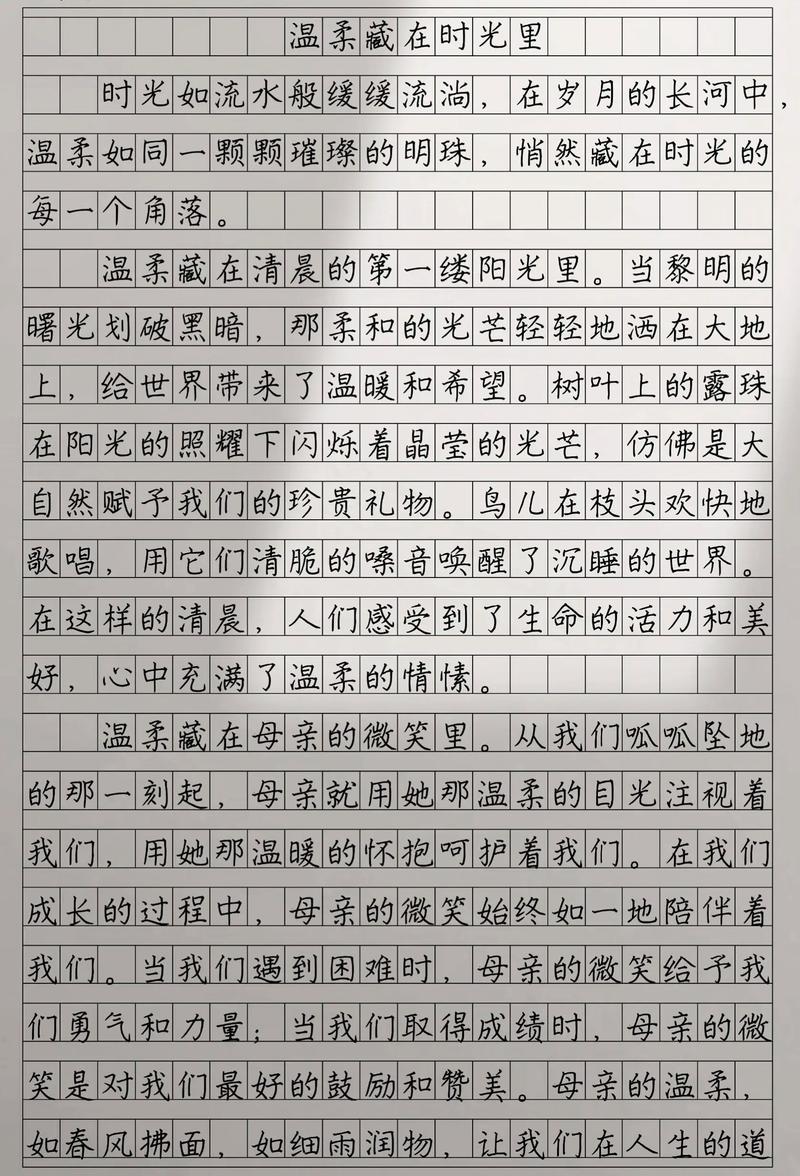 温柔藏在时光里
时光如流水般缓缓流淌，在岁月的长河中，
温柔如同一颗颗璀璨的明珠，悄然藏在时光的
每一个角落。
温柔藏在清晨的第一缕阳光里。当黎明的
曙光划破黑暗，那柔和的光芒轻轻地洒在大地
上，给世界带来了温暖和希望。树叶上的露珠
在阳光的照耀下闪烁着晶莹的光芒，仿佛是大
自然赋予我们的珍贵礼物。鸟儿在枝头欢快地
歌唱，用它们清脆的嗓音唤醒了沉睡的世界。
在这样的清晨，人们感受到了生命的活力和美
好，心中充满了温柔的情愫。
温柔藏在母亲的微笑里。从我们呱呱坠地
的那一刻起，母亲就用她那温柔的目光注视着
我们，用她那温暖的怀抱呵护着我们。在我们
成长的过程中，母亲的微笑始终如一地陪伴着
我们。当我们遇到困难时，母亲的微笑给予我
们勇气和力量；当我们取得成绩时，母亲的微
笑是对我们最好的鼓励和赞美。母亲的温柔，
如春风拂面，如细雨润物，让我们在人生的道